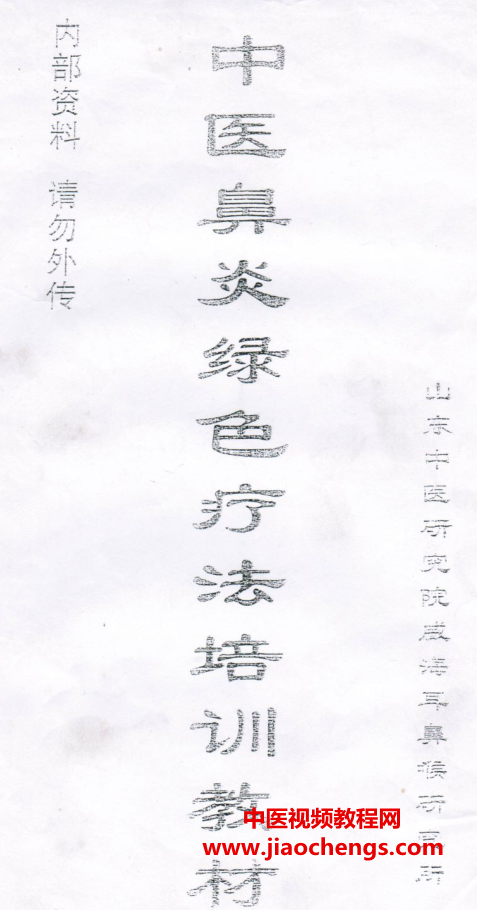 内部资料 请勿外传
中医鼻炎绿色疗法培训教材
山东中医研究院威海耳鼻喉研究所
中医视频教程网
www.jiaochengs.com